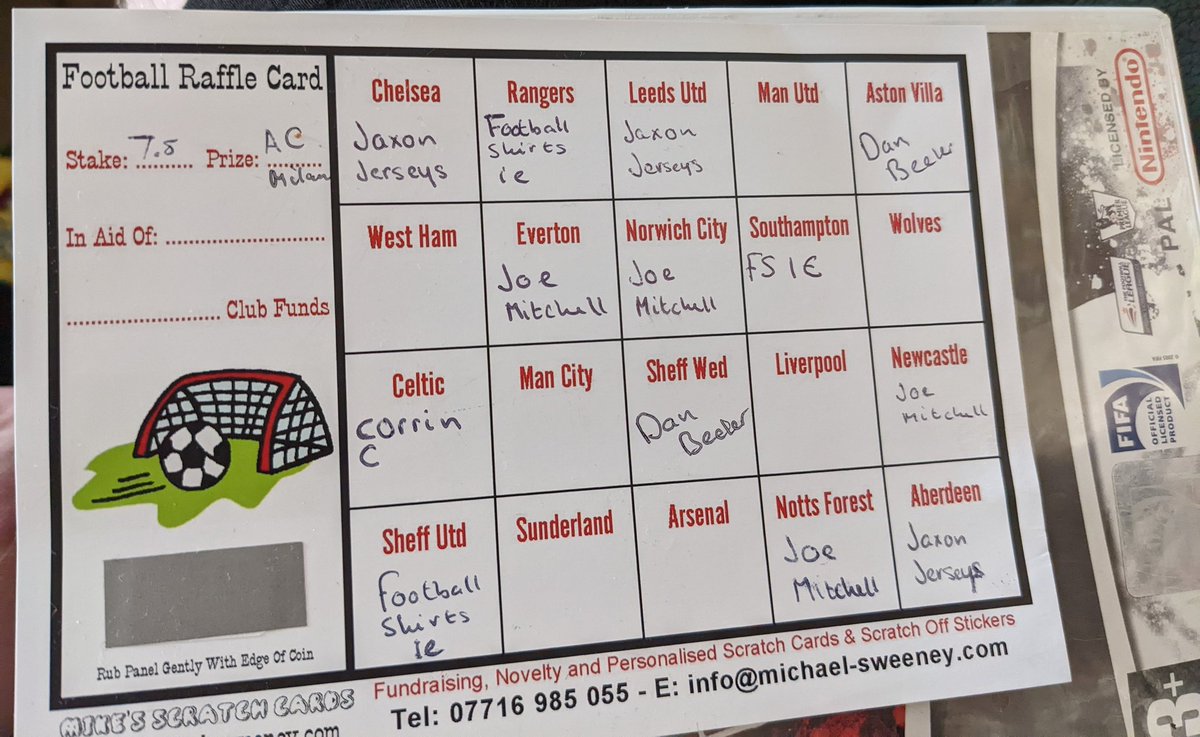 Football Raffle Card
Stake: 7.5 Prize: AC
Milan
In Aid Of:
Club Funds
Rub Panel Gently With Edge Of Coin
MIKE'S SCRATCH CARDS
Chelsea
Jaxon
Jerseys
Rangers
Football
shirts
ie
Leeds Utd
Jaxon
Jerseys
Man Utd
Aston Villa
Dan
Beeker
West Ham
Everton
Joe
Mitchell
Norwich City
Joe
Mitchell
Southampton
FS IE
Wolves
Celtic
Corrin
C
Man City
Sheff Wed
Dan
Beeker
Liverpool
Newcastle
Joe
Mitchell
Sheff Utd
Football
Shirts
ie
Sunderland
Arsenal
Notts Forest
Joe
Mitchell
Aberdeen
Jaxon
Jerseys
Fundraising, Novelty and Personalised Scratch Cards & Scratch Off Stickers
Tel: 07716 985 055 - E: info@michael-sweeney.com
LICENSED BY
Nintendo
PAL
FIFA
OFFICIAL
LICENSED
PRODUCT
3+